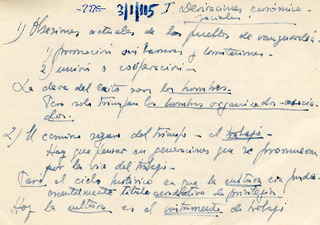 -2775- 3/1/115 I Derivaciones económico-
sociales.
1) Obsesiones actuales de los pueblos de vanguardia
1) promoción sin barreras y limitaciones.
2) unión o cooperación.
La clave del éxito son los hombres.
Pero solo triunfan los hombres organizados - asocia-
dos.
2) El camino seguro del triunfo - el trabajo.
Hay que pensar en generaciones que se promuevan
por la vía del trabajo.
Pasó el ciclo histórico en que la cultura era
título acreditativo de privilegio
Hoy la cultura es el instrumento de trabajo